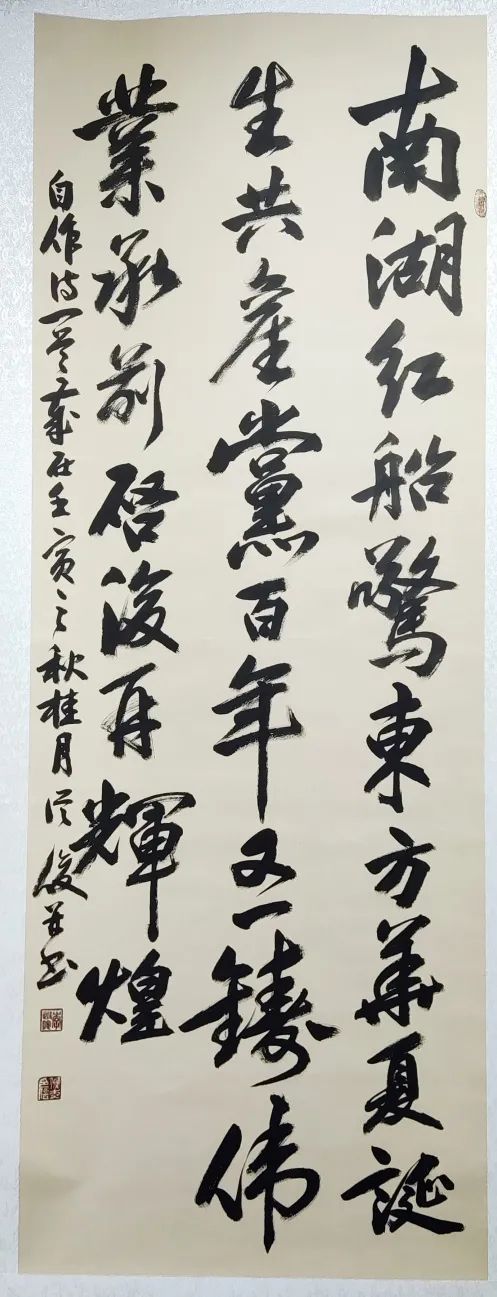 南湖红船驚東方華夏誕
生共產黨百年又一鑄偉
業承前啓後再輝煌
自作诗一首歲在壬寅之秋桂月 俊 书